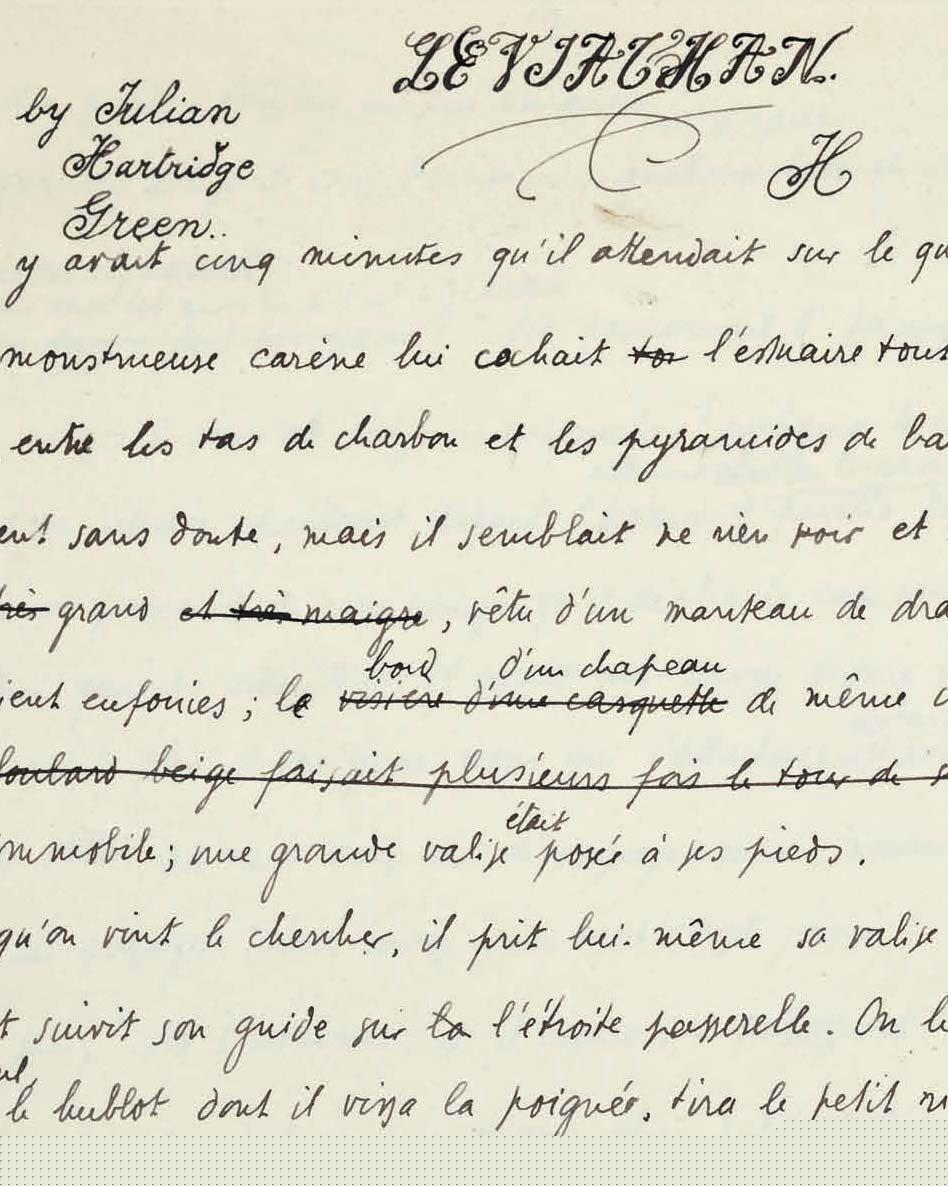 LEVIATHAN.
by Julian
Hartridge
Green..
H
y avait cinq minutes qu'il attendait sur le qu
monstrueuse carène lui cachait l'estuaire tout
entre les tas de charbon et les pyramides de ba
ent sans doute, mais il semblait ne rien voir et
très grand et très maigre, vêtu d'un manteau de dra
bord d'un chapeau
ient enfouies ; le visière d'une casquette de même c
foulard beige faisait plusieurs fois le tour de s
était
immobile; une grande valise posée à ses pieds.
qu'on vint le chercher, il prit lui-même sa valise
t suivit son guide sur la l'étroite passerelle. On l
le hublot dont il vissa la poignée, tira le petit ri